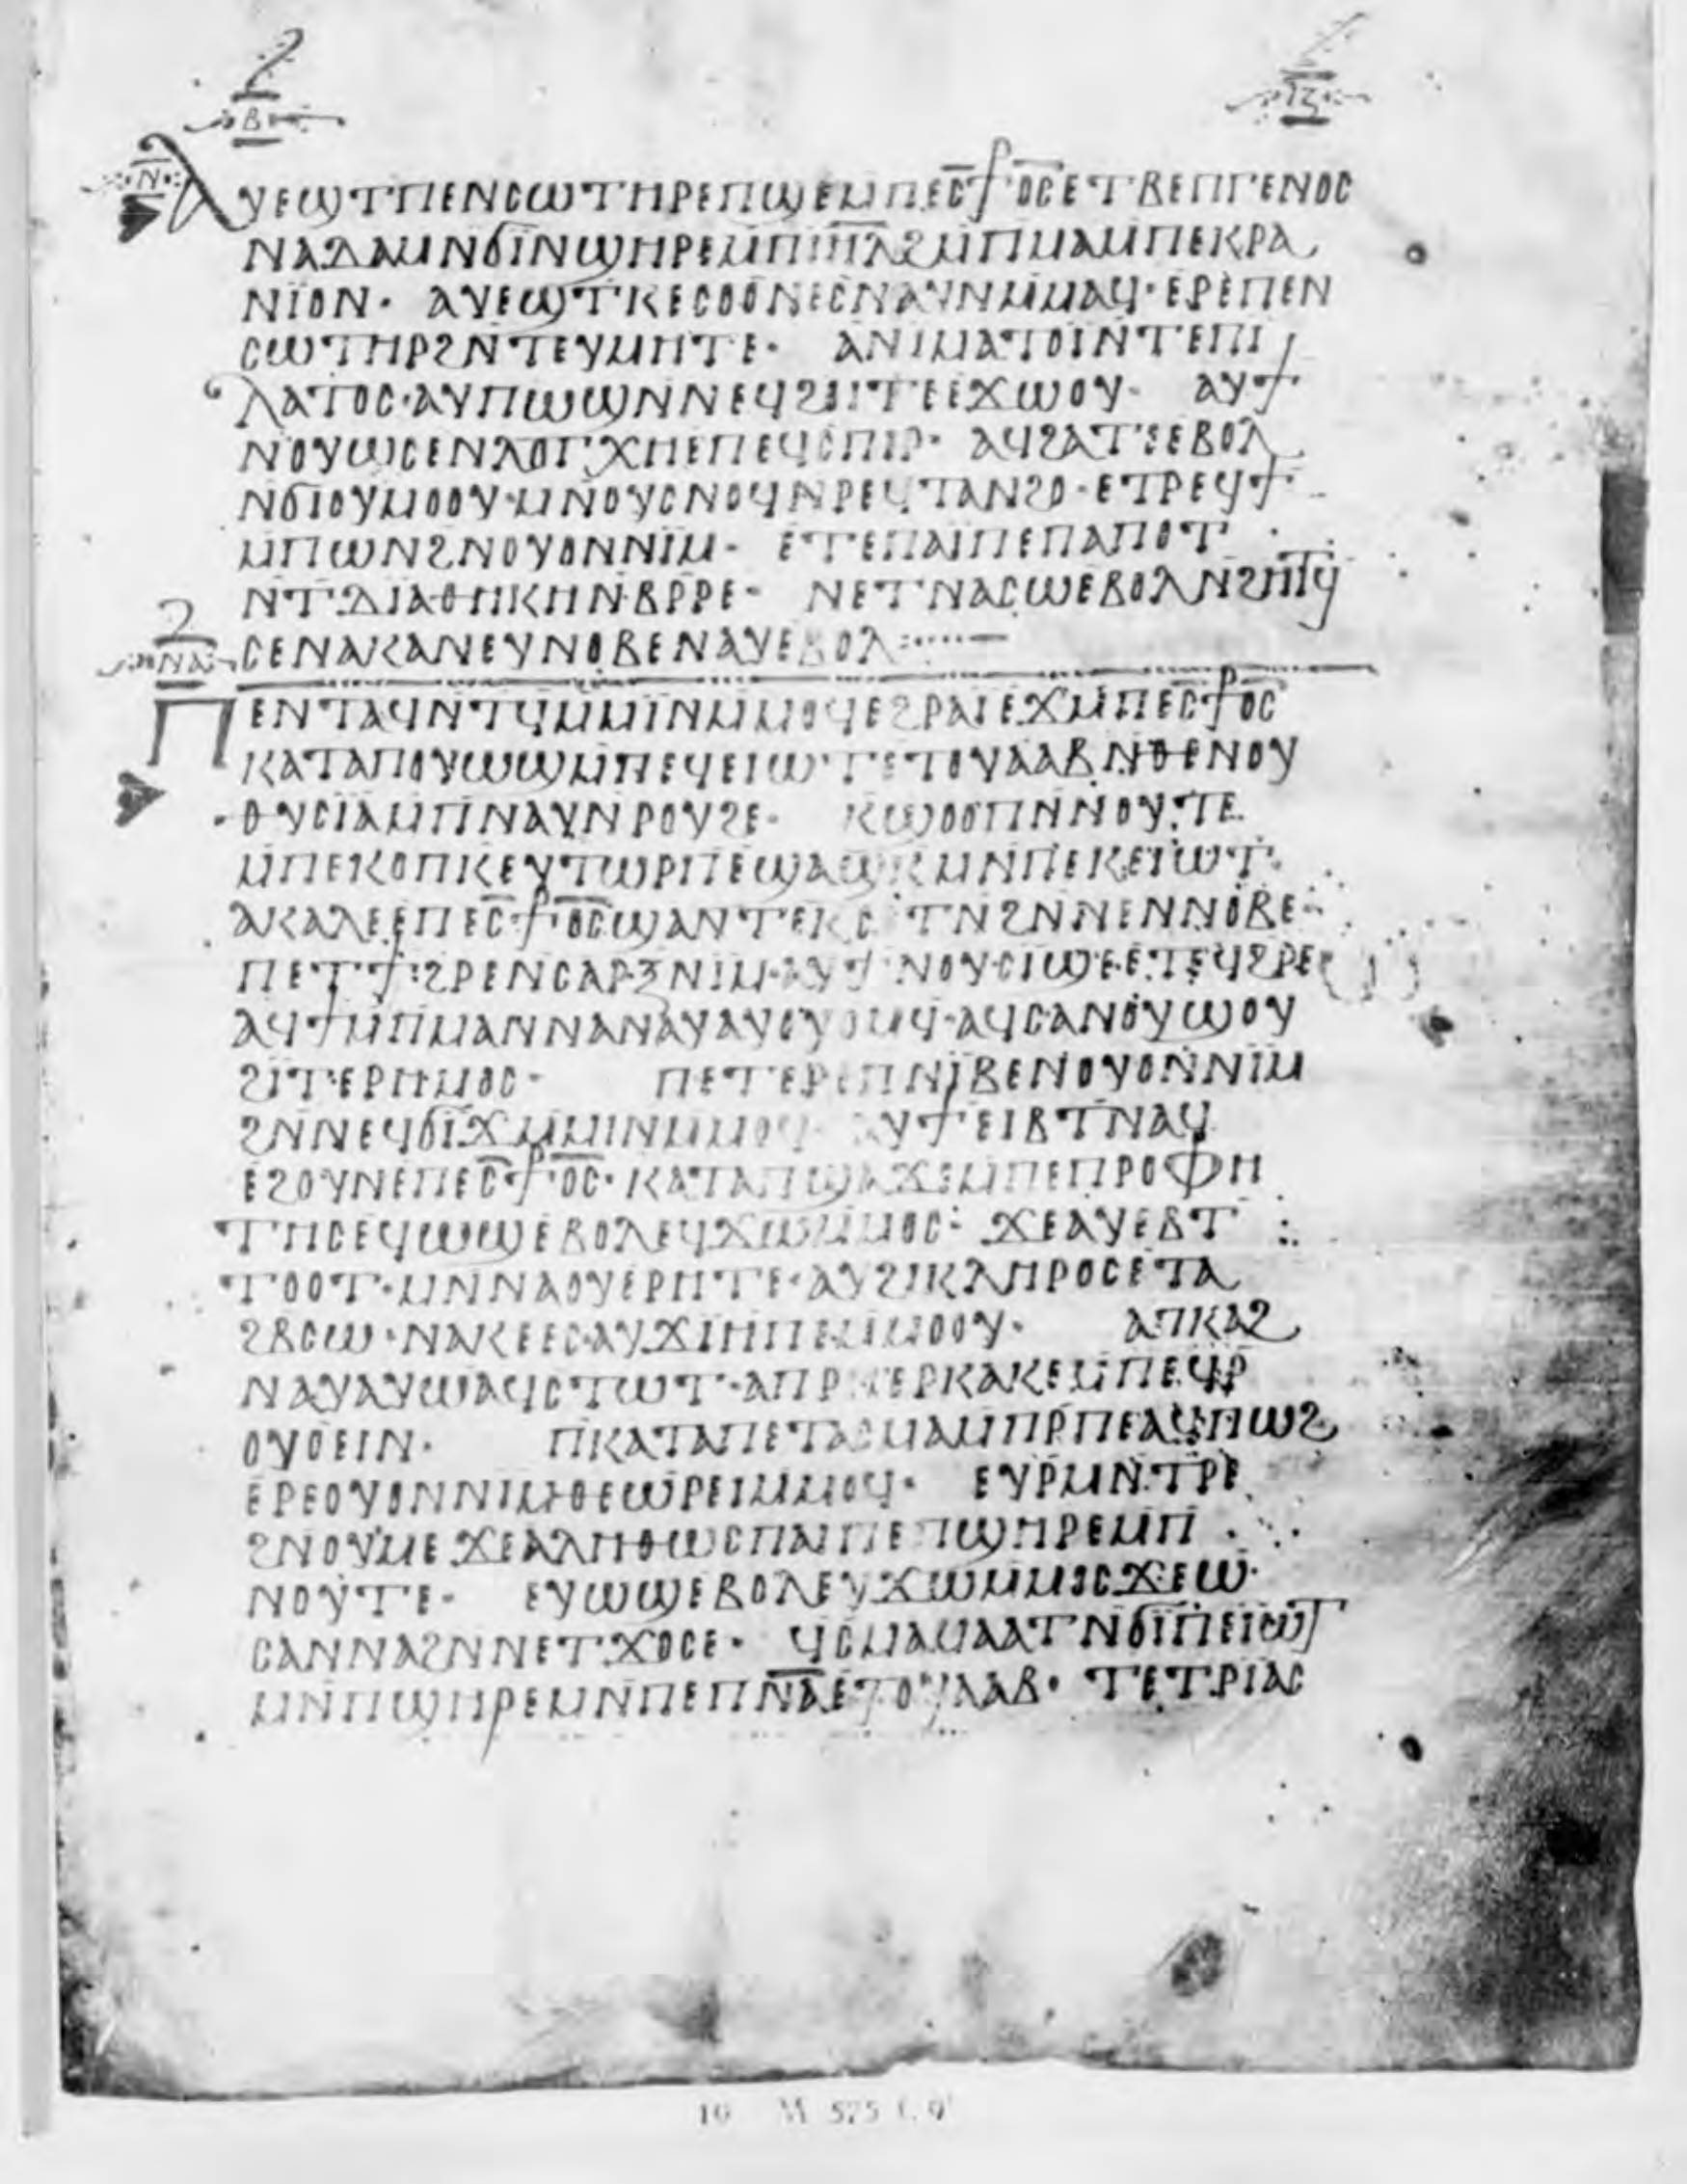 ⲃ ⲓⲍ
ⲛ
ⲁⲩⲉϣⲧⲡⲉⲛⲥⲱⲧⲏⲣⲉⲡϣⲉⲙⲡⲉⲥ̅ⳁⲟ̅ⲥ̅ⲉⲧⲃⲉⲡⲅⲉⲛⲟⲥ
ⲛⲁⲇⲁⲙⲛϭⲓⲛϣⲏⲣⲉⲙⲡⲓ̅ⲏ̅ⲗ̅ϩⲙⲡⲙⲁⲙⲡⲉⲕⲣⲁ
ⲛⲓⲟⲛ· ⲁⲩⲉϣⲧⲕⲉⲥⲟⲟⲛⲉⲥⲛⲁⲩⲛⲙⲙⲁϥ·ⲉⲣⲉⲡⲉⲛ
ⲥⲱⲧⲏⲣϩⲛⲧⲉⲩⲙⲏⲧⲉ· ⲁⲛⲙⲁⲧⲟⲓⲛⲧⲉⲡⲓ
ⲗⲁⲧⲟⲥ·ⲁⲩⲡⲱϣⲛⲛⲉϥϩⲓⲧⲉⲉϫⲱⲟⲩ· ⲁⲩϯ
ⲛⲟⲩⲱⲥⲉⲛⲗⲟⲅⲭⲏⲉⲡⲉϥⲥⲡⲓⲣ· ⲁϥϩⲁⲧⲉⲉⲃⲟⲗ
ⲛϭⲓⲟⲩⲙⲟⲟⲩ·ⲙⲛⲟⲩⲥⲛⲟϥⲛⲣⲉϥⲧⲁⲛϩⲟ·ⲉⲧⲣⲉϥϯ
ⲙⲡⲱⲛϩⲛⲟⲩⲟⲛⲛⲓⲙ· ⲉⲧⲉⲡⲁⲓⲡⲉⲡⲁⲡⲟⲧ
ⲛⲧⲇⲓⲁⲑⲏⲕⲏⲛⲃⲣⲣⲉ· ⲛⲉⲧⲛⲁⲥⲱⲉⲃⲟⲗⲛϩⲏⲧϥ
ⲥⲉⲛⲁⲕⲁⲛⲉⲩⲛⲟⲃⲉⲛⲁⲩⲉⲃⲟⲗ
ⲛⲁ
ⲡⲉⲛⲧⲁϥⲛⲧϥⲙⲙⲓⲛⲙⲙⲟϥⲉϩⲣⲁⲓⲉϫⲙⲡⲉⲥ̅ⳁⲟ̅ⲥ̅
ⲕⲁⲧⲁⲡⲟⲩⲱϣⲙⲡⲉϥⲉⲓⲱⲧⲉⲧⲟⲩⲁⲁⲃⲛⲑⲉⲛⲟⲩ
ⲑⲩⲥⲓⲁⲙⲡⲛⲁⲩⲛⲣⲟⲩϩⲉ· ⲕϣⲟⲟⲡⲛⲛⲟⲩⲧⲉ
ⲙⲡⲉⲕⲟⲡⲕⲉⲩⲧⲱⲣⲡⲉϣⲁϣⲕⲙⲛⲡⲉⲕⲉⲓⲱⲧ·
ⲁⲕⲁⲗⲉⲉⲡⲉⲥ̅ⳁⲟ̅ⲥ̅ϣⲁⲛⲧⲉⲕⲥ ⲧⲛϩⲛⲛⲉⲛⲛⲟⲃⲉ·
ⲡⲉⲧϯϩⲣⲉⲛⲥⲁⲣⲝⲛⲓⲙ·ⲁⲩϯⲛⲟⲩⲥⲓϣⲉⲉⲧⲉϥϩⲣⲉ
ⲁϥϯⲙⲡⲙⲁⲛⲛⲁⲛⲁⲩⲁⲩⲟⲩⲟⲙϥ·ⲁϥⲥⲁⲛⲟⲩϣⲟⲩ
ϩⲓⲧⲉⲣⲏⲙⲟⲥ· ⲡⲉⲧⲉⲣⲉⲡⲛⲓⲃⲉⲛⲟⲩⲟⲛⲛⲓⲙ
ϩⲛⲛⲉϥϭⲓϫⲙⲙⲓⲛⲙⲙⲟϥ ⲁⲩϯⲉⲓⲃⲧⲛⲁϥ
ⲉϩⲟⲩⲛⲉⲡⲉⲥ̅ⳁⲟ̅ⲥ̅·ⲕⲁⲧⲁⲡϣⲁϫⲉⲙⲡⲉⲡⲣⲟⲫⲏ
ⲧⲏⲥⲉϥⲱϣⲉⲃⲟⲗⲉϥϫⲱⲙⲙⲟⲥ· ϫⲉⲁⲩⲉⲃⲧ
ⲧⲟⲟⲧ·ⲙⲛⲛⲁⲟⲩⲉⲣⲏⲧⲉ·ⲁⲩϩⲓⲕⲗⲏⲣⲟⲥⲉⲧⲁ
ϩⲃⲥⲱ·ⲛⲁⲕⲉⲉⲥ·ⲁⲩϫⲓⲏⲡⲉⲙⲙⲟⲟⲩ· ⲁⲡⲕⲁϩ
ⲛⲁⲩⲁⲩⲱⲁϥⲥⲧⲱⲧ·ⲁⲡⲣⲏⲉⲣⲕⲁⲕⲉⲙⲡⲉϥⲣ
ⲟⲩⲟⲉⲓⲛ· ⲡⲕⲁⲧⲁⲡⲉⲧⲁⲥⲙⲁⲙⲡⲣⲡⲉⲁϥⲡⲱϩ
ⲉⲣⲉⲟⲩⲟⲛⲛⲓⲙⲑⲉⲱⲣⲉⲓⲙⲙⲟϥ· ⲉⲩⲣⲙⲛⲧⲣⲉ
ϩⲛⲟⲩⲙⲉϫⲉⲁⲗⲏⲑⲱⲥⲡⲁⲓⲡⲉⲡϣⲏⲣⲉⲙⲡ
ⲛⲟⲩⲧⲉ· ⲉⲩⲱϣⲉⲃⲟⲗⲉⲩϫⲱⲙⲙⲟⲥϫⲉⲱ
ⲥⲁⲛⲛⲁϩⲛⲛⲉⲧϫⲟⲥⲉ· ϥⲥⲙⲁⲙⲁⲁⲧⲛϭⲓⲡⲉⲓⲱⲧ
ⲙⲛⲡϣⲏⲣⲉⲙⲛⲡⲉⲡⲛ̅ⲁ̅ⲉⲧⲟⲩⲁⲁⲃ· ⲧⲉⲧⲣⲓⲁⲥ
10 M 575 f. 9ᵛ